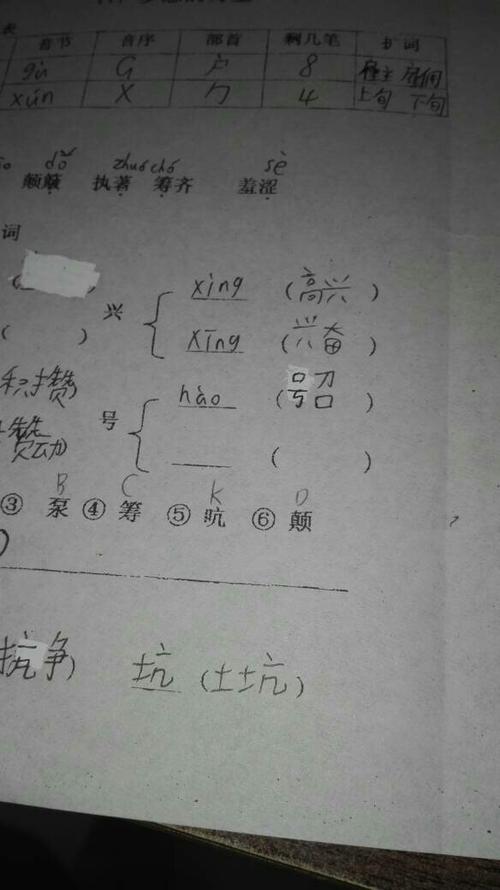 音节 音序 部首 剩几笔 扩词
gù G 户 8 雇主 雇佣
xún X 勹 4 上旬 下旬
dǒ zhuó chó sè
颠簸 执著 筹齐 羞涩
词
兴 xìng (高兴)
( ) xīng (兴奋)
积攒)
号 hào (号码)
攒动) ( )
B C K D
③ 泵 ④ 筹 ⑤ 吭 ⑥ 颠
抗争) 坑 (土坑)